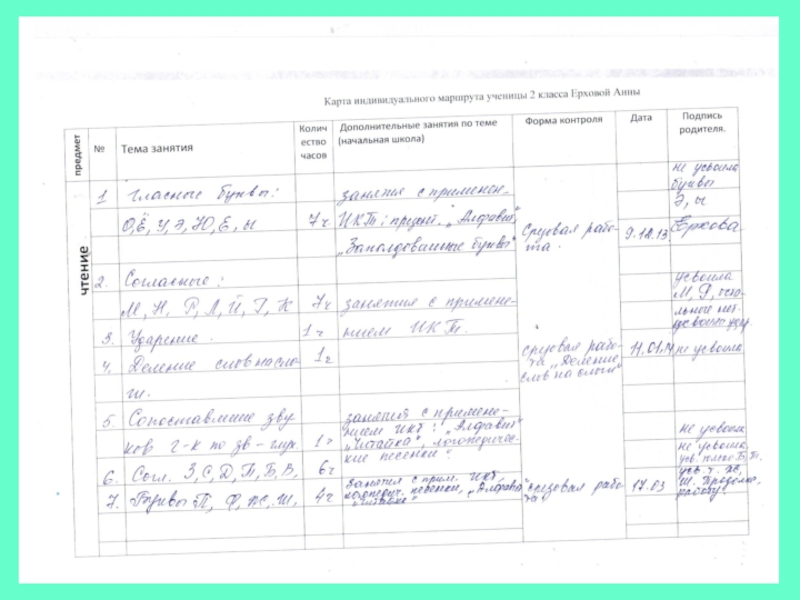 Карта индивидуального маршрута ученицы 2 класса Ерховой Анны
предмет
№
Тема занятия
Колич
ество
часов
Дополнительные занятия по теме
(начальная школа)
Форма контроля
Дата
Подпись
родителя.
чтение
1 Гласные буквы:
О,Ё, У, Э, Ю, Е, ы
7ч
занятия с применен.
ИКТ: презент. „Алфавит“,
„Заколдованные буквы“
Срезовая рабо-
та.
9.12.13
не усвоила
буквы
Э, ы
Ерхова.
2. Согласные:
М, Н, Р, Л, Й, Г, К
7ч
занятия с примене-
нием ИКТ.
усвоила
М, Р, осталь-
ные не
3. Ударение.
1ч
4. Деление слов на сло-
ги.
1ч
срезовая рабо-
та „Деление
слов на слоги“
11.01.14
не усвоила
5. Сопоставление зву
ков г-к по зв – глух.
1ч
занятия с примене-
нием ИКТ: „Алфавит“
„Читайка“, логопедичес-
кие песенки“.
не усвоила
6. Согл. З, С, Д, Т, Б, В,
6ч
не усвоила,
усв. плохо Б, Т.
7. Буквы П, Ф, Ж, Ш,
4ч
занятия с прим. ИКТ,
логопедич. песенки, „Алфавит“
„Читайка“
срезовая рабо-
та
17.03
усв. ч. Ж,
Ш. Продолж.
работу.